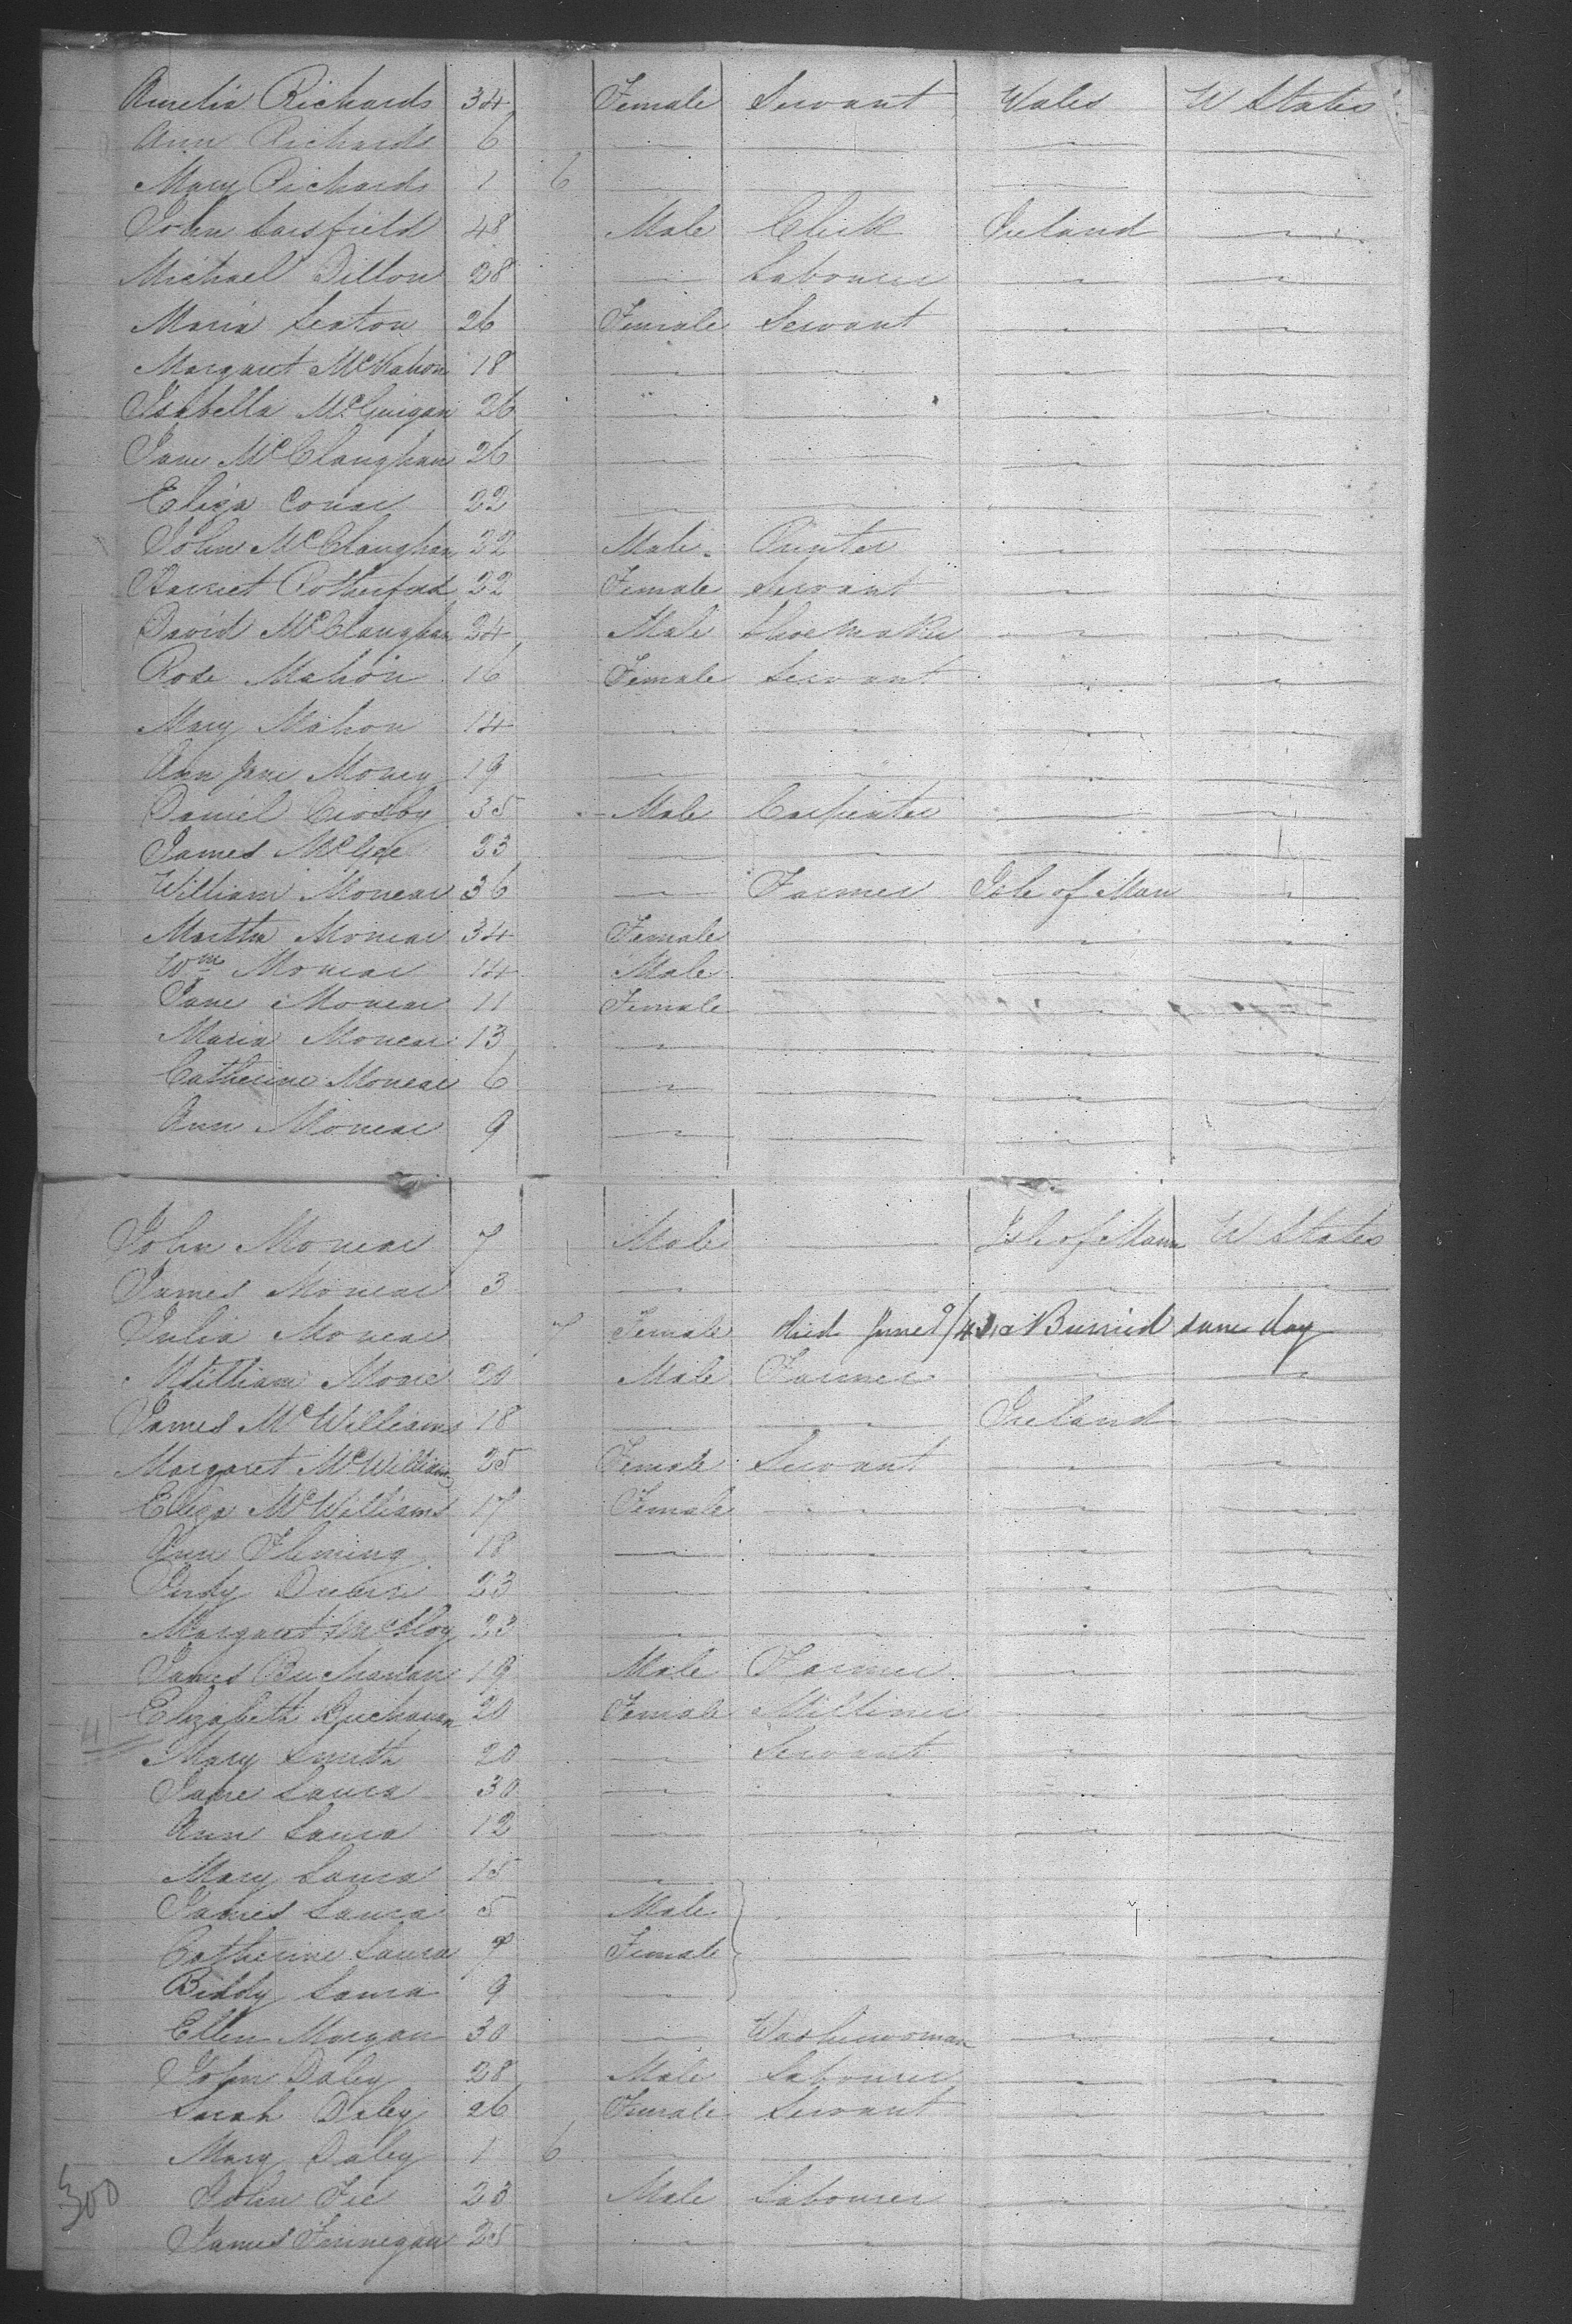 Amelia Richards 34 Female Servant Wales U States
Ann Richards 6
Mary Richards 1 6
John Sarsfield 48 Male Clerk Ireland
Michael Dillon 28 Labourer
Maria Seaton 26 Female Servant
Margaret McMahon 18
Isabella McGuigan 26
Jane McClaughan 26
Eliza 22
John McClaughan 22 Male Printer
Harriet Rotherford 22 Female Servant
David McClaughan 24 Male Shoemaker
Rose Mahon 16 Female Servant
Mary Mahon 14
Ann Jane 19
Daniel Crosby 35 Male Carpenter
James McGee 23
William Monear 36 Farmer Isle of Man
Martha Monear 34 Female
Wm Monear 14 Male
Jane Monear 11 Female
Maria Monear 13
Catherine Monear 6
Ann Monear 9
John Monear 7 Male Isle of Mann U States
James Monear 3
Julia Monear 7 Female died June 9/43 & Burried same day
William 20 Male Farmer
James McWilliams 18 Ireland
Margaret McWilliams 25 Female Servant
Eliza McWilliams 17 Female
Ann Fleming 18
23
Margaret 23
James Buchanan 19 Male Farmer
Elizabeth Buchanan 20 Female Milliner
Mary Smith 20 Servant
Jane Laura 30
Ann Laura 12
Mary Laura 15
James Laura 5 Male
Catherine Laura 7 Female
Biddy Laura 9
Ellen Morgan 30 Washerwoman
John Daley 28 Male Labourer
Sarah Daley 26 Female Servant
Mary Daley 1 6
300 John Fee 23 Male Labourer
James Finnegan 25